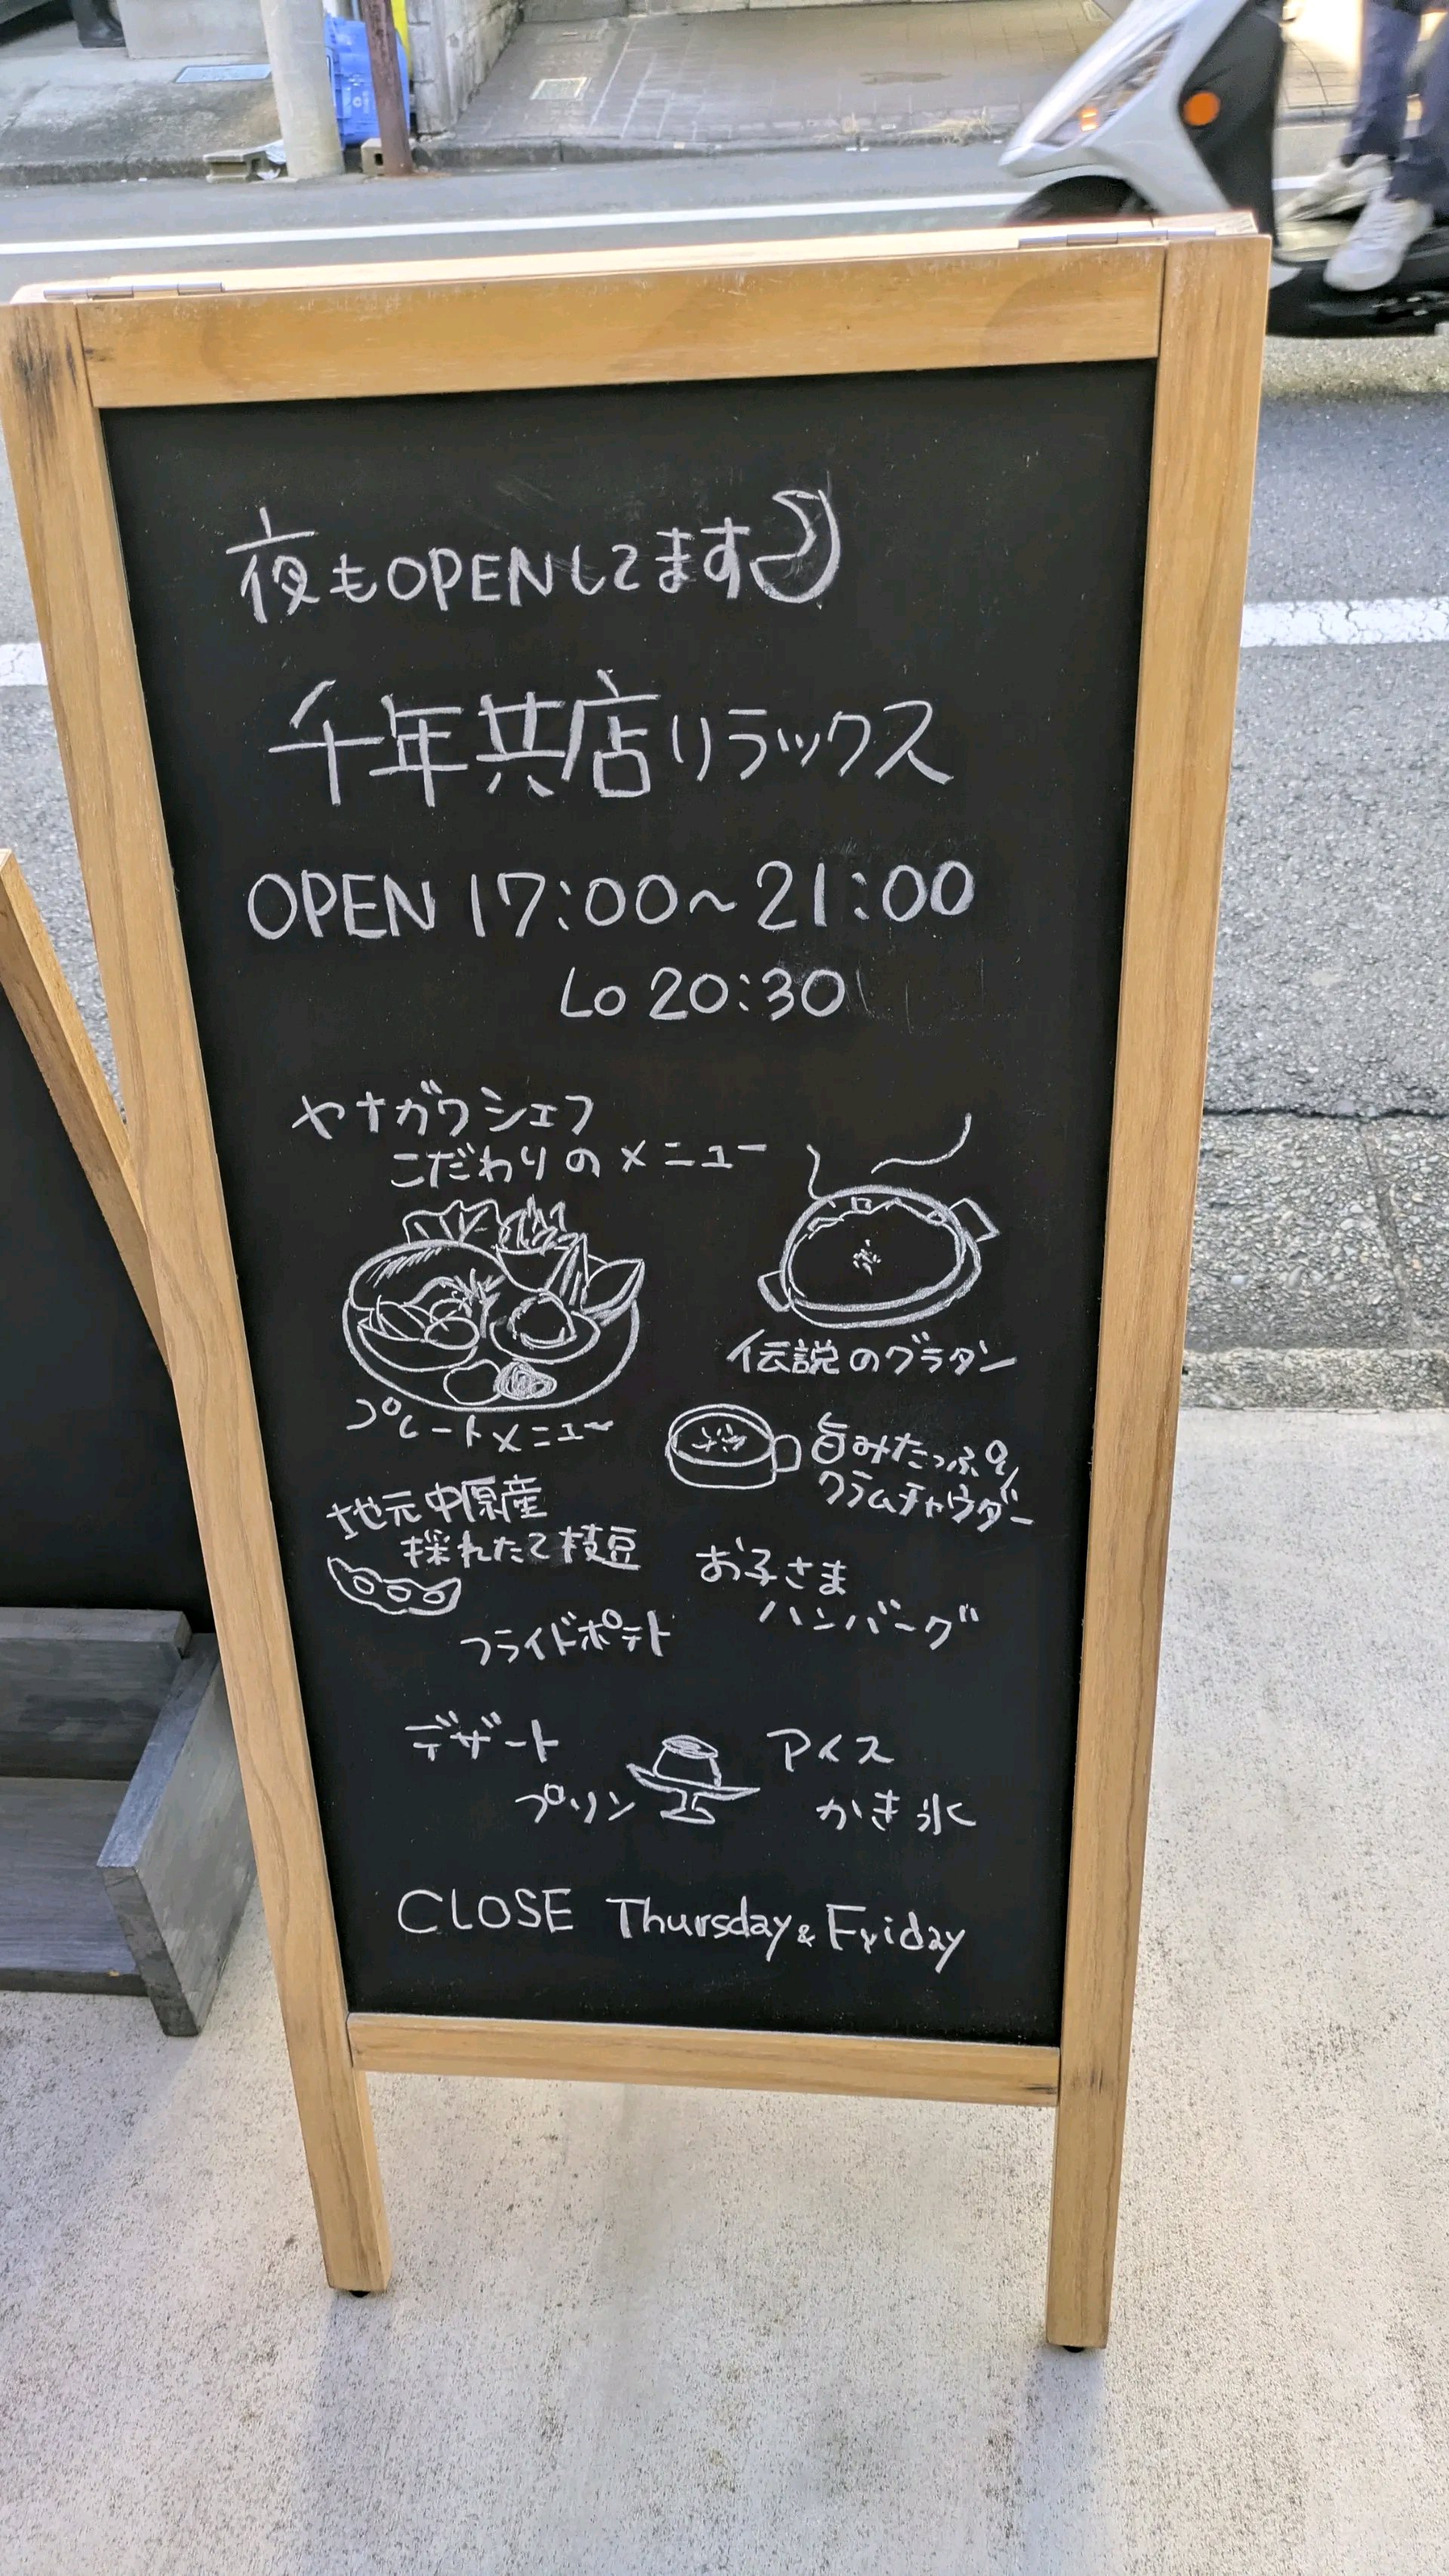 夜もOPENしてます
千年共店リラックス
OPEN 17:00~21:00
Lo 20:30
ヤナガワシェフ
こだわりのメニュー
伝説のグラタン
プレートメニュー
旨みたっぷり
クラムチャウダー
地元中原産
採れたて枝豆
お子さま
ハンバーグ
フライドポテト
デザート
プリン
アイス
かき氷
CLOSE Thursday & Friday